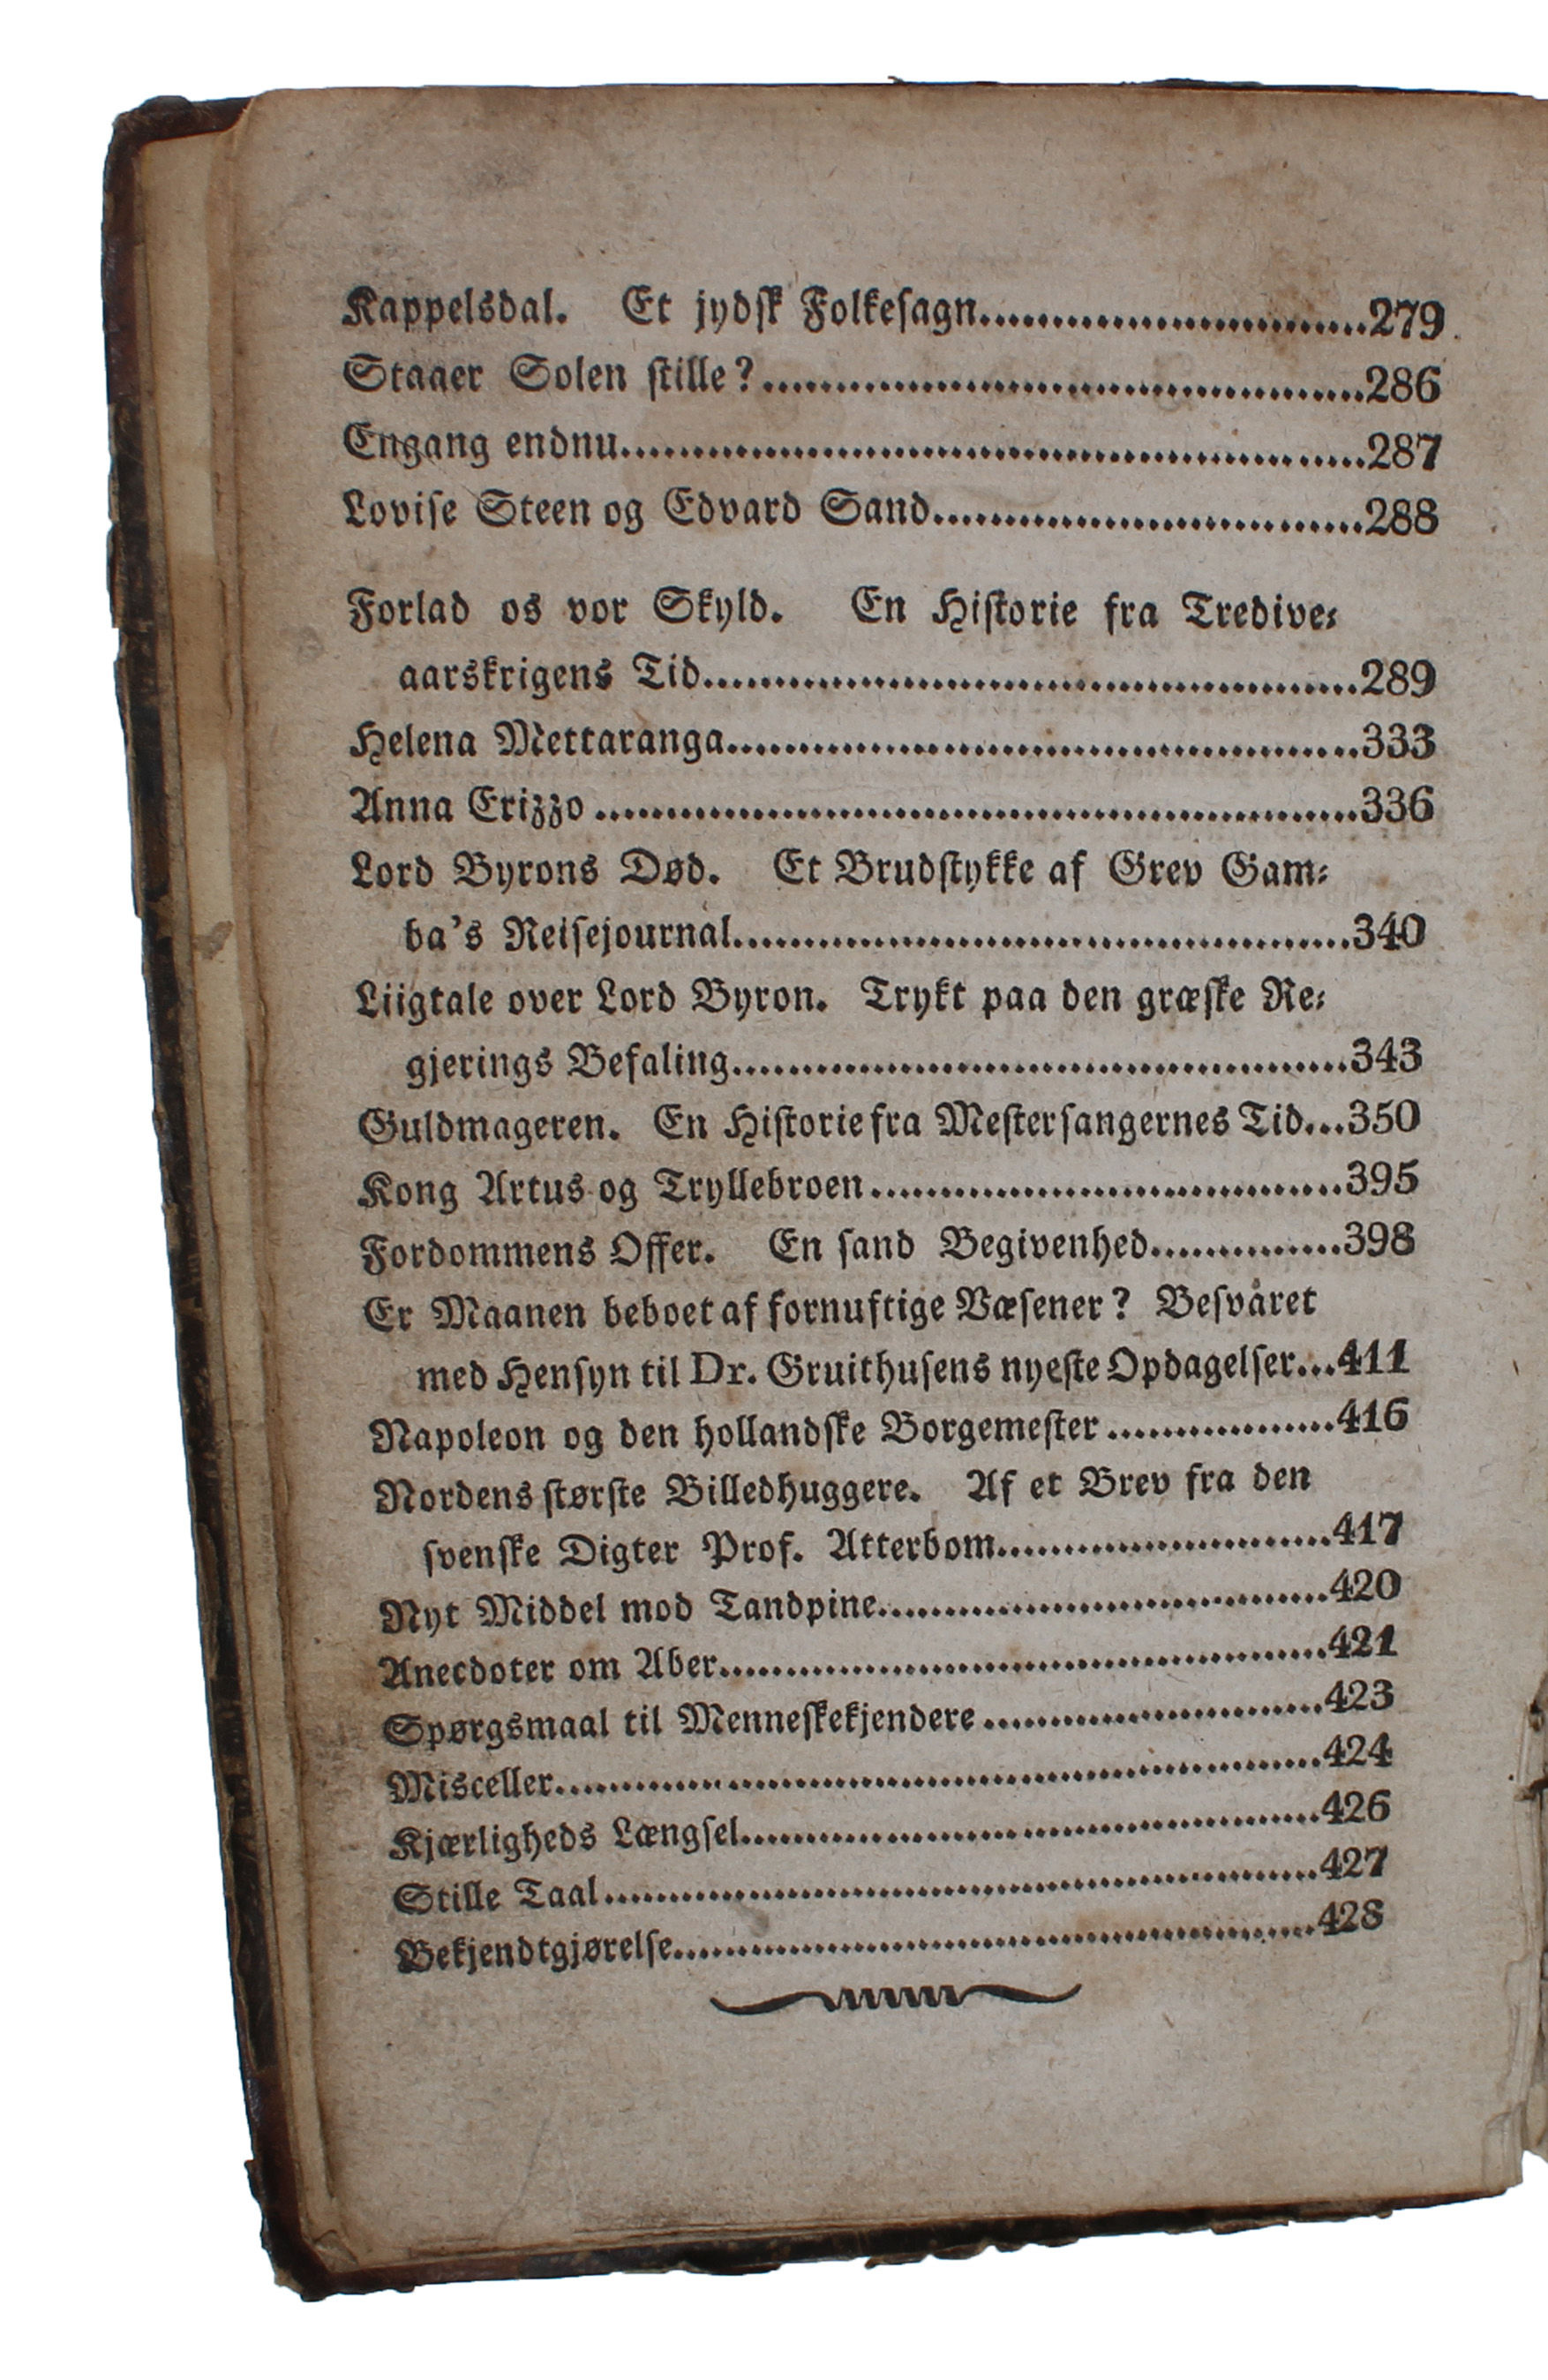 Kappelsdal. Et jydsk Folkesagn...........................279
Staaer Solen stille?..........................................286
Engang endnu....................................................287
Lovise Steen og Edvard Sand..............................288
Forlad os vor Skyld. En Historie fra Tredive=
aarskrigens Tid..............................................289
Helena Mettaranga............................................333
Anna Erizzo .....................................................336
Lord Byrons Død. Et Brudstykke af Grev Gam=
ba's Reisejournal...........................................340
Liigtale over Lord Byron. Trykt paa den græske Re=
gjerings Befaling...........................................343
Guldmageren. En Historie fra Mestersangernes Tid...350
Kong Artus og Tryllebroen.................................395
Fordommens Offer. En sand Begivenhed..............398
Er Maanen beboet af fornuftige Væsener? Besvaret
med Hensyn til Dr. Gruithusens nyeste Opdagelser...411
Napoleon og den hollandske Borgemester .................416
Nordens største Billedhuggere. Af et Brev fra den
svenske Digter Prof. Atterbom........................417
Nyt Middel mod Tandpine................................420
Anecdoter om Aber...........................................421
Spørgsmaal til Menneskekjendere .........................423
Misceller.......................................................424
Kjærligheds Længsel.........................................426
Stille Taal....................................................427
Bekjendtgjørelse..............................................428